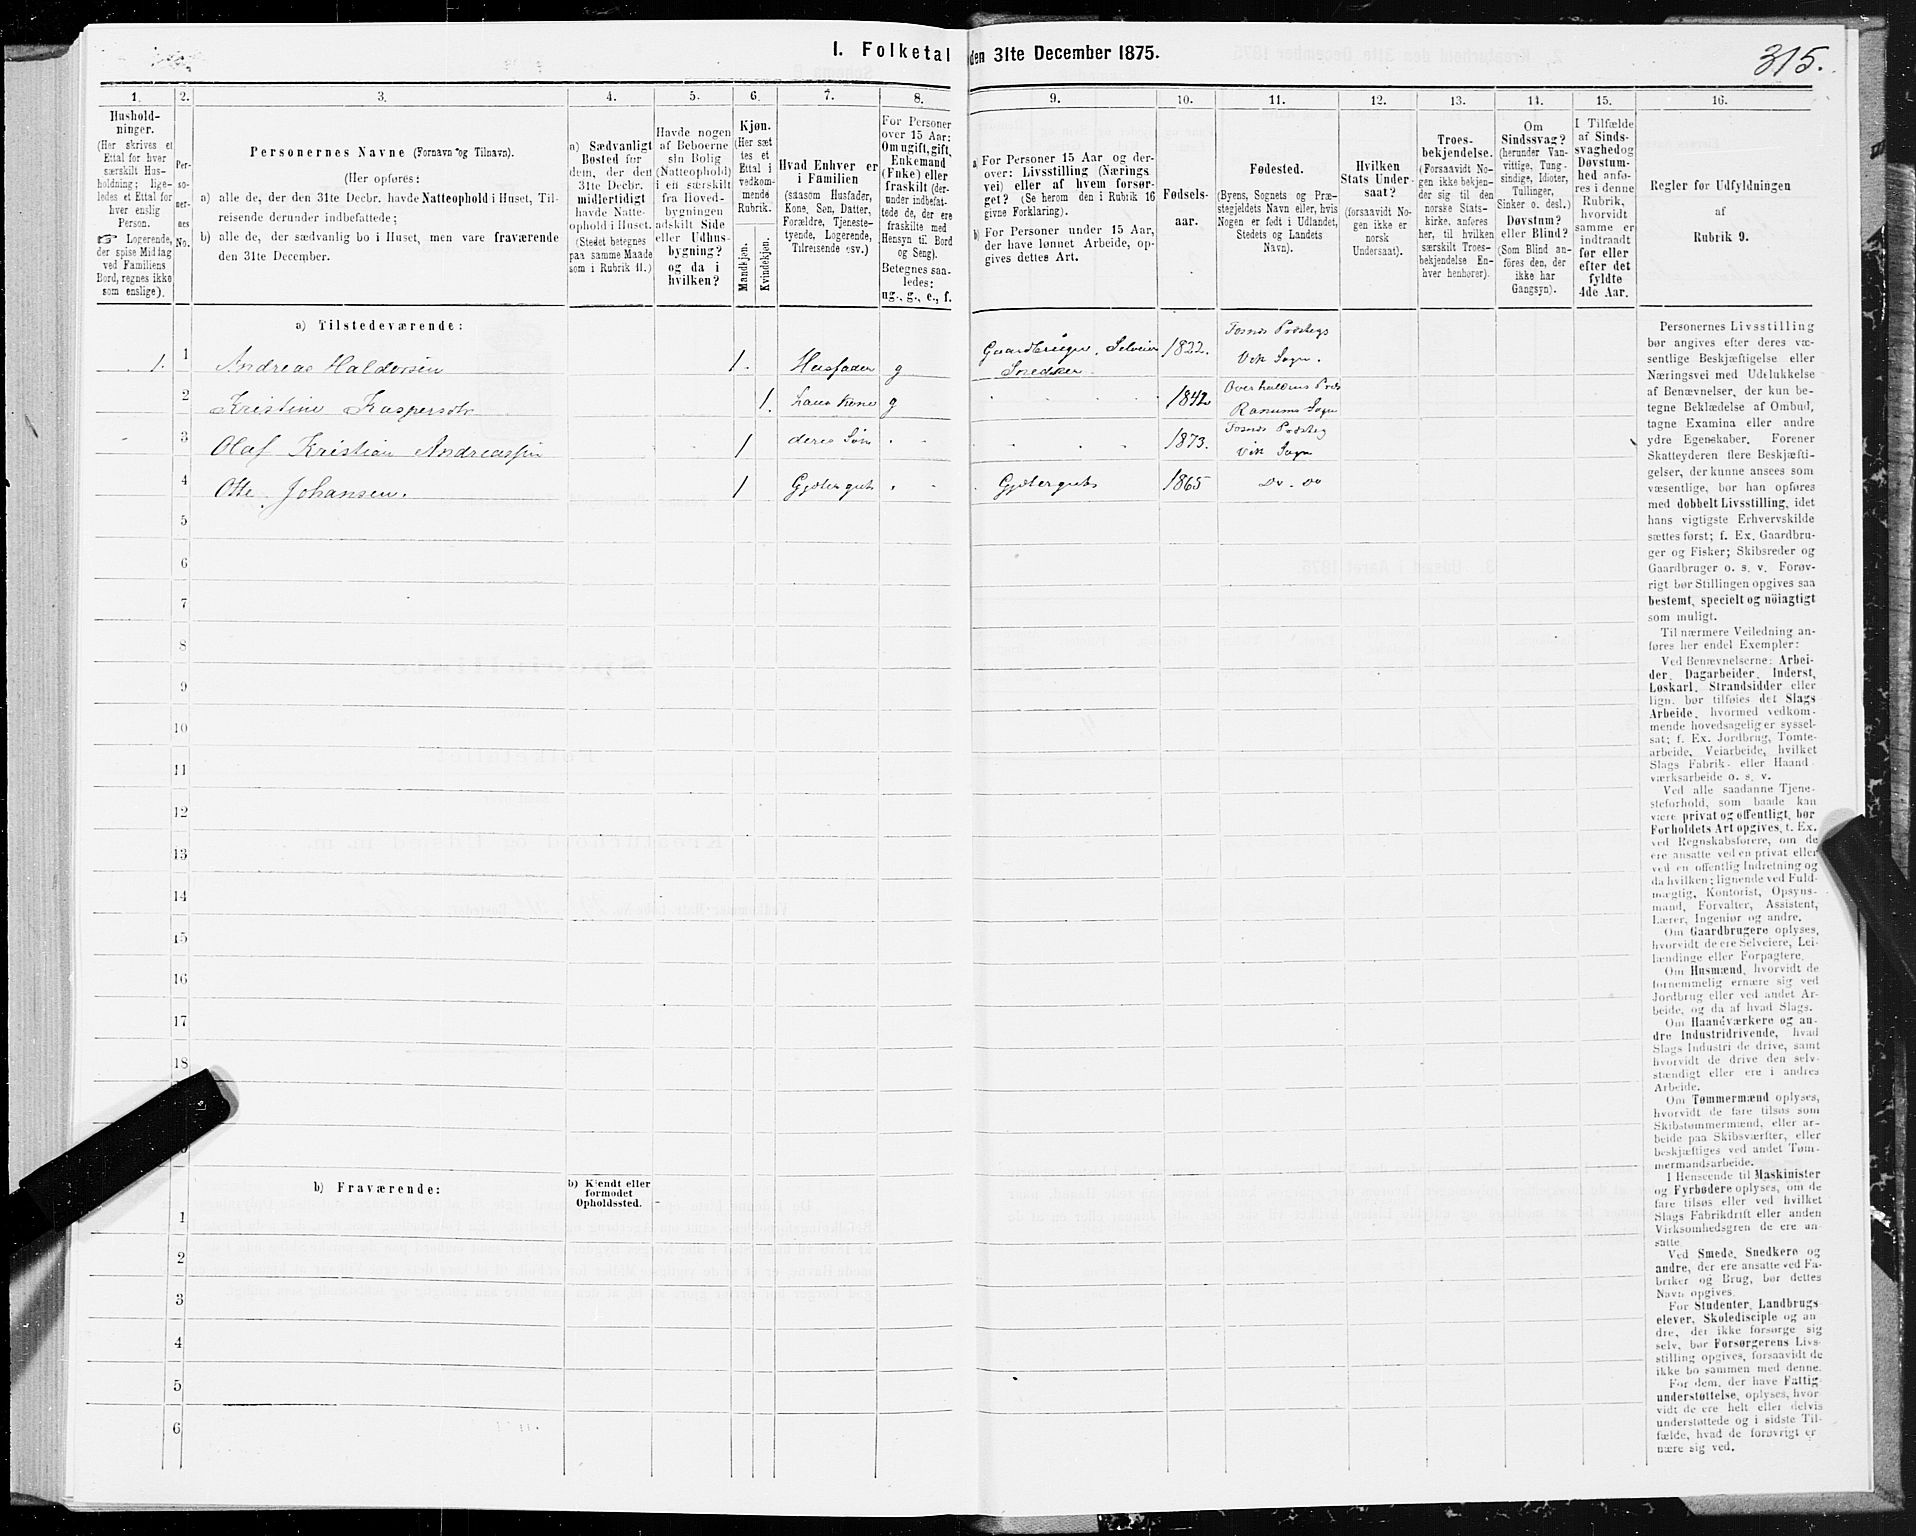 I. Folketal den 31te December 1875.
315.
1.
Husholdninger.
(Her skrives et
Ettal for hver
særskilt Husholdning;
ligeledes et Ettal for
hver enslig
Person.
☞ Logerende,
der spise Middag
ved Familiens
Bord, regnes ikke
som enslige).
2.
Personernes
No.
3.
Personernes Navne (Fornavn og Tilnavn).
(Her opføres:
a) alle de, der den 31te Decbr. havde Natteophold i Huset, Tilreisende
derunder indbefattede;
b) alle de, der sædvanlig bo i Huset, men vare fraværende
den 31te December.
4.
a) Sædvanligt
Bosted for
dem, der den
31te Decbr.
midlertidigt
havde Natteophold
i Huset.
(Stedet betegnes
paa samme Maade
som i Rubrik 11.)
5.
Havde nogen
af Beboerne
sin Bolig
(Natteophold)
i en særskilt
fra Hovedbygningen
adskilt Side
eller Udhusbygning?
og da i
hvilken?
6.
Kjøn.
(Her sættes
et
Ettal i
vedkommende
Rubrik.
Mandkjøn.
Kvindekjøn.
7.
Hvad Enhver er
i Familien
(saasom Husfader,
Kone, Søn, Datter,
Forældre, Tjenestetyende,
Logerende,
Tilreisende osv.)
8.
For Personer
over 15 Aar:
Om ugift, gift,
Enkemand
(Enke) eller
fraskilt (derunder
indbefattede
de, der ere
fraskilte med
Hensyn til Bord
og Seng).
Betegnes saaledes:
ug., g., e., f.
9.
a) For Personer 15 Aar og derover:
Livsstilling (Næringsvei)
eller af hvem forsørget?
(Se herom den i Rubrik 16
givne Forklaring).
b) For Personer under 15 Aar,
der have lønnet Arbeide, opgives
dettes Art.
10.
Fødselsaar.
11.
Fødested.
(Byens, Sognets og Præstegjeldets
Navn eller, hvis
Nogen er født i Udlandet,
Stedets og Landets
Navn).
12.
Hvilken
Stats Undersaat?
(forsaavidt Nogen
ikke er
norsk
Undersaat).
13.
Troesbekjendelse.
(Forsaavidt Nogen
ikke bekjender
sig til den
norske Statskirke,
anføres
her, til hvilken
særskilt Troesbekjendelse
Enhver
henhører).
14.
Om
Sindssvag?
(herunder Vanvittige,
Tungsindige,
Idioter,
Tullinger,
Sinker o. desl.)
Døvstum?
eller Blind?
(Som Blind anføres
den, der
ikke har
Gangsyn).
15.
I Tilfælde
af Sindssvaghed
og
Døvstumhed
anføres
i denne
Rubrik,
hvorvidt
samme er
indtraadt
før eller
efter det
fyldte
4de Aar.
16.
Regler for Udfyldningen
af
Rubrik 9.
a) Tilstedeværende:
1. 1 Andreas Haldorsen 1. Husfader g Gaardbruger, Selveier Snedker 1822. Fosnes Præstegj Vik Sogn.
2 Kristine Kaspersdtr 1. hans Kone g 1842 Overhaldens Præs Ranums Sogn
3 Olaf Kristian Andreassen 1 deres Søn 1873. Fosnes Præsteg Vik Sogn
4 Otte Johansen. 1 Gjætergut Gjætergut 1865 Do. Do
5
6
7
8
9
10
11
12
13
14
15
16
17
18
b) Fraværende:
b) Kjendt eller
formodet
Opholdssted.
1
2
3
4
5
6
Personernes Livsstilling
bør angives efter deres væsentlige
Beskjæftigelse eller
Næringsvei med Udelukkelse
af Benævnelser, der kun betegne
Beklædelse af Ombud,
tagne Examina eller andre
ydre Egenskaber. Forener
Skatteyderen flere Beskjæftigelser,
der kunne ansees som
væsentlige, bør han opføres
med dobbelt Livsstilling, idet
hans vigtigste Erhvervskilde
sættes først; f. Ex. Gaardbruger
og Fisker; Skibsreder og
Gaardbruger o. s. v. Forøvrigt
bør Stillingen opgives saa
bestemt, specielt og nöiagtigt
som muligt.
Til nærmere Veiledning anføres
her endel Exempler:
Ved Benævnelserne: Arbeider,
Dagarbeider, Inderst,
Løskarl, Strandsidder eller
lign. bør tilføies det Slags
Arbeide, hvormed vedkommende
hovedsagelig er sysselsat;
f. Ex. Jordbrug, Tomtearbeide,
Veiarbeide, hvilket
Slags Fabrik- eller Haandværksarbeide
o. s. v.
Ved alle saadanne Tjenesteforhold,
som baade kan
være privat og offentligt, bør
Forholdets Art opgives, t. Ex.
ved Regnskabsførere, om de
ere ansatte ved en privat eller
ved en offentlig Indretning og
da hvilken; lignende ved Fuldmægtig,
Kontorist, Opsynsmand,
Forvalter, Assistent,
Lærer, Ingeniør og andre.
Om Gaardbrugere oplyses,
hvorvidt de ere Selveiere, Leilændinge
eller Forpagtere.
Om Husmænd, hvorvidt de
fornemmelig ernære sig ved
Jordbrug eller ved andet Arbeide,
og da af hvad Slags.
Om Haandværkere og andre
Industridrivende, hvad
Slags Industri de drive, samt
hvorvidt de drive den selvstændigt
eller ere i andres
Arbeide.
Om Tømmermænd oplyses,
hvorvidt de fare tilsøs som
Skibstømmermænd, eller arbeide
paa Skibsværfter, eller
beskjæftiges ved andet Tømmermandsarbeide.
I Henseende til Maskinister
og Fyrbødere oplyses, om de
fare tilsøs eller ved hvilket
Slags Fabrikdrift eller anden
Virksomhedsgren de ere ansatte.
Ved Smede, Snedkere og
andre, der ere ansatte ved Fabriker
og Brug, bør dettes
Navn opgives.
For Studenter, Landbrugselever,
Skoledisciple og andre,
der ikke forsørge sig
selv, bør Forsørgerens Livsstilling
opgives, forsaavidt de
ikke bo sammen med denne.
For dem, der have Fattigunderstøttelse,
oplyses, hvorvidt
de ere helt eller delvis
understøttede og i sidste Tilfælde,
hvad de forøvrigt ernære
sig ved.